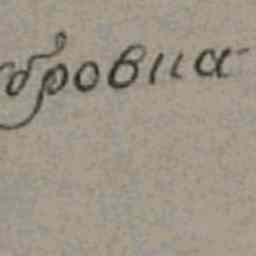 бровна